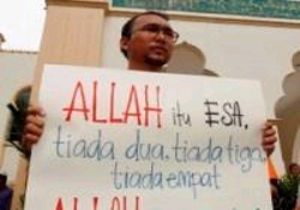 ALLAH itu ESA,
tiada dua, tiada tiga,
tiada empat
ALLAH